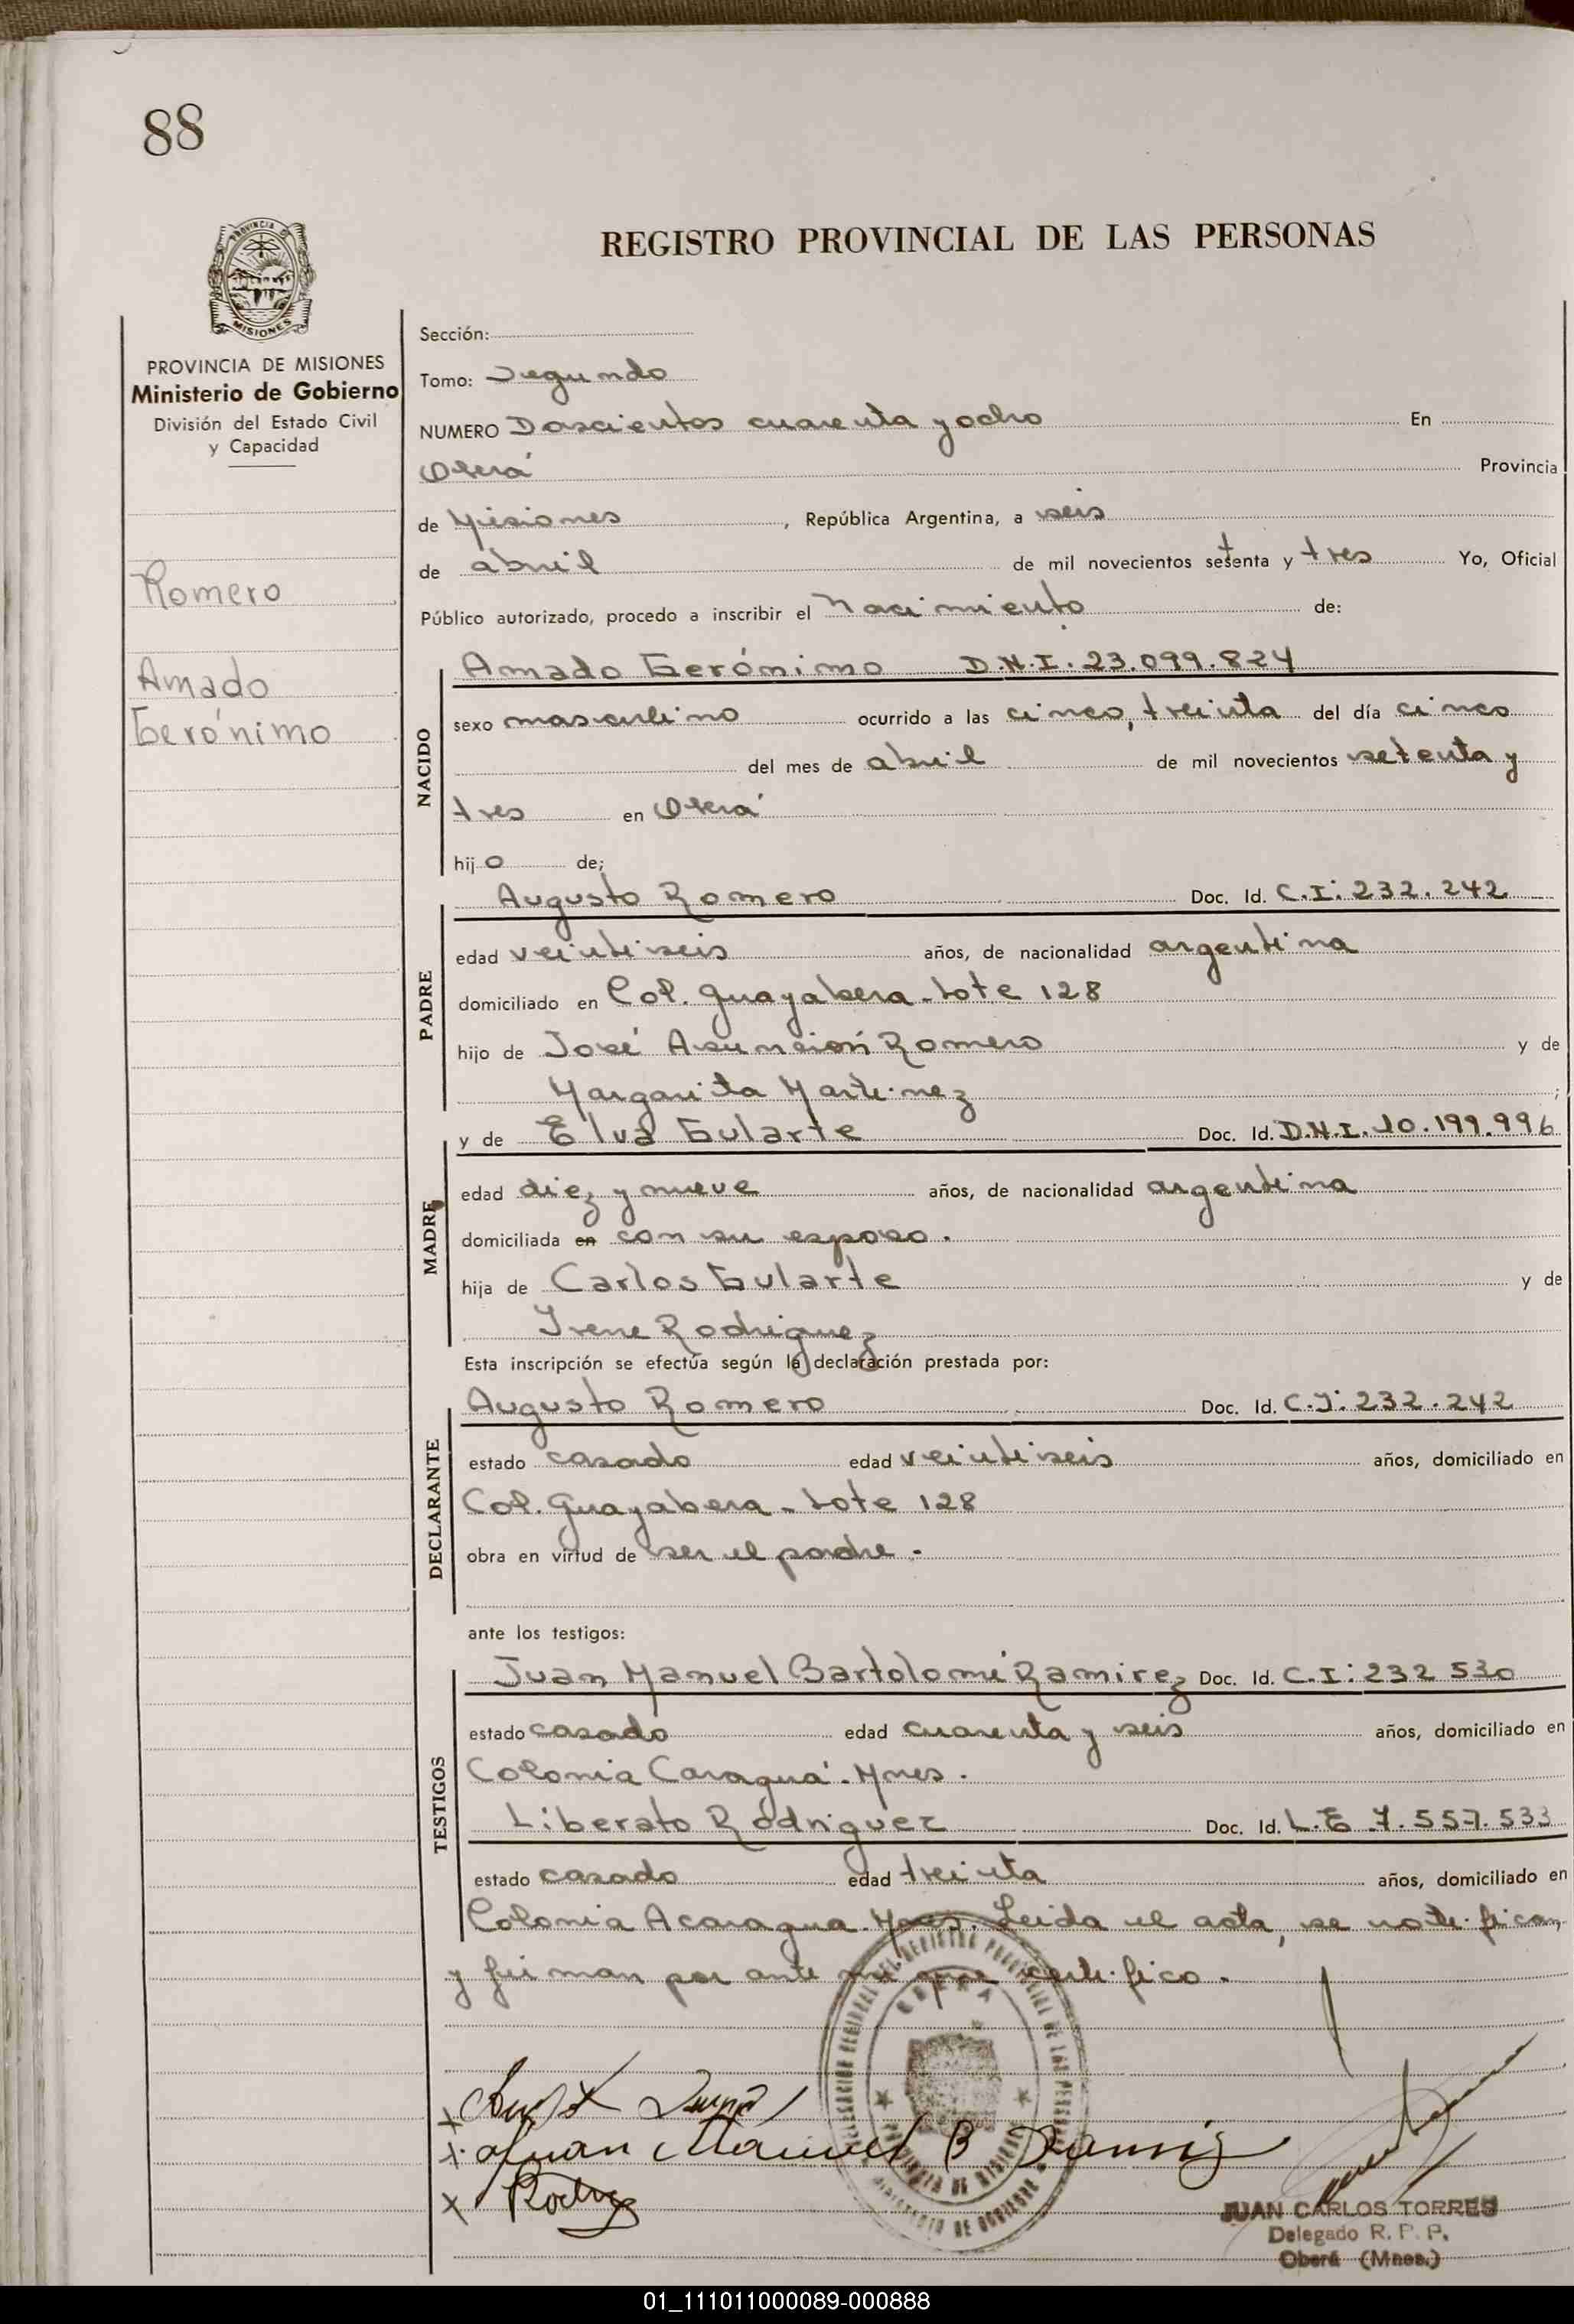 88
PROVINCIA DE
MISIONES
PROVINCIA DE MISIONES
Ministerio de Gobierno
División del Estado Civil
y Capacidad
Romero
Amado
Gerónimo
REGISTRO PROVINCIAL DE LAS PERSONAS
Sección:
Tomo: Segundo
NUMERO Doscientos cuarenta y ocho En
Oberá Provincia
de Misiones, República Argentina, a seis
de abril de mil novecientos setenta y tres Yo, Oficial
Público autorizado, procedo a inscribir el Nacimiento de:
NACIDO
Amado Gerónimo D.N.I. 23.099.824
sexo masculino ocurrido a las cinco, treinta del día cinco
del mes de abril de mil novecientos setenta y
tres en Oberá
hijo de;
PADRE
Augusto Romero Doc. Id. C.I: 232.242
edad veintiseis años, de nacionalidad argentina
domiciliado en Col. Guayabera - Lote 128
hijo de José Asunción Romero y de
Margarita Martinez ;
MADRE
y de Elva Gularte Doc. Id. D.N.I. 10.199.996
edad diez y nueve años, de nacionalidad argentina
domiciliada en con su esposo.
hija de Carlos Gularte y de
Irene Rodriguez
Esta inscripción se efectúa según la declaración prestada por:
DECLARANTE
Augusto Romero Doc. Id. C.I: 232.242
estado casado edad veintiseis años, domiciliado en
Col. Guayabera - Lote 128
obra en virtud de ser el padre.
ante los testigos:
TESTIGOS
Juan Manuel Bartolomé Ramirez Doc. Id. C.I: 232 530
estado casado edad cuarenta y seis años, domiciliado en
Colonia Caraguá. Mnes.
Liberato Rodriguez Doc. Id. L.E 7.557.533
estado casado edad treinta años, domiciliado en
Colonia Acaragua. Mnes. Leida el acta, se notifican
y firman por ante mi que certifico.
Juan Manuel B Ramirez
JUAN CARLOS TORRES
Delegado R. P. P.
Oberá (Mnes.)
01_111011000089-000888